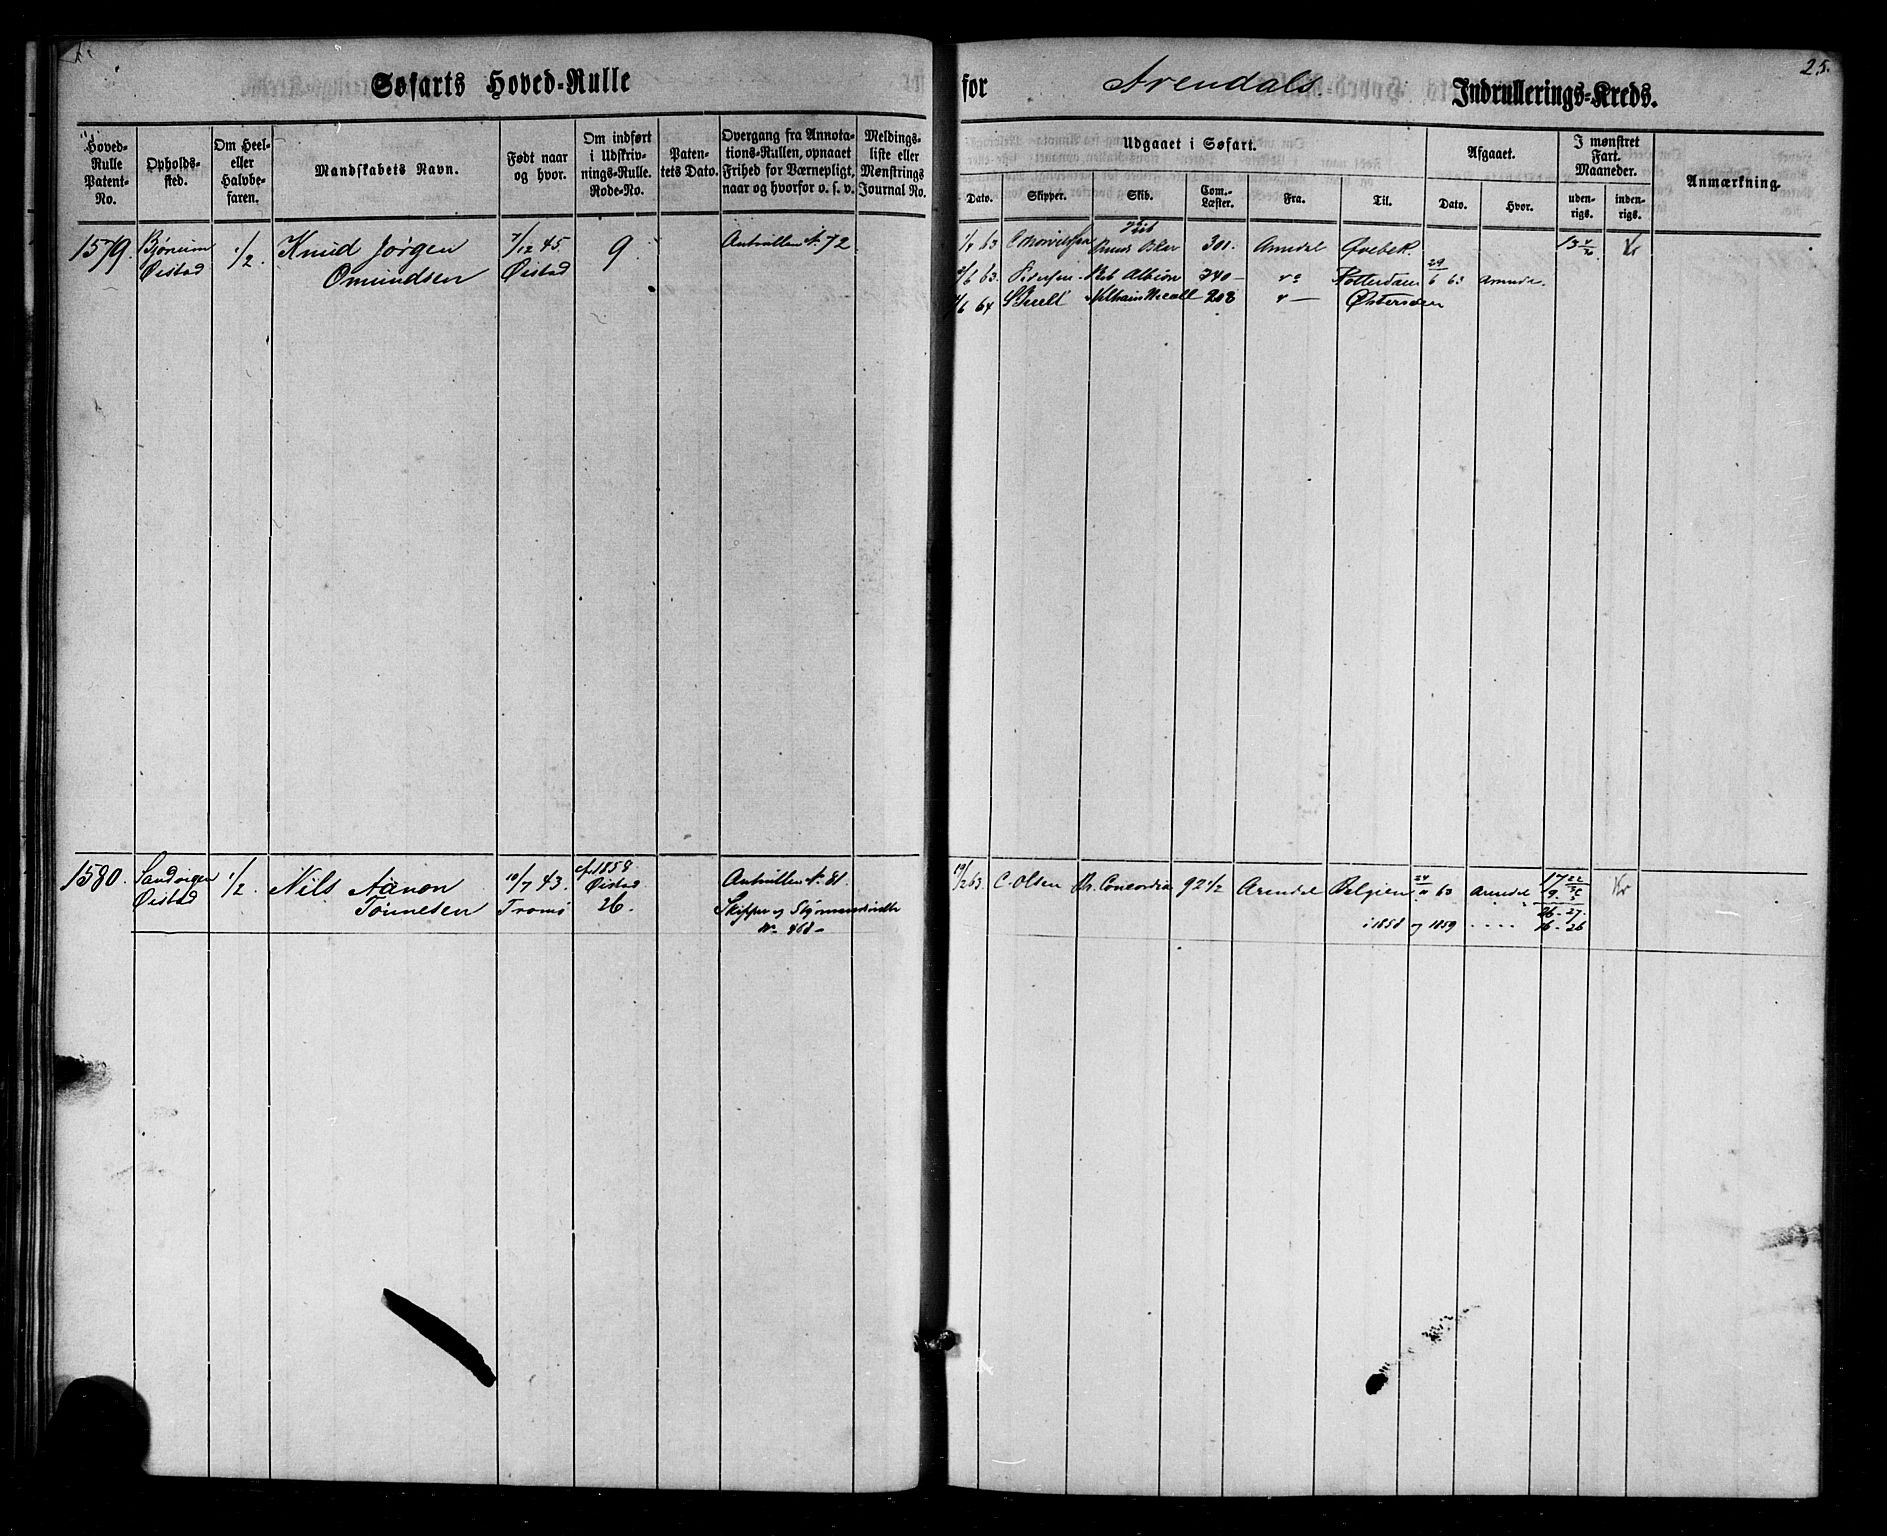 Søfarts Hoved-Rulle for Arendals Indrullerings-Kreds.
25.
Hoved-Rulle Patent-No.
Opholds-sted.
Om Heel- eller Halvbe-faren.
Mandskabets Navn.
Født naar og hvor.
Om indført i Udskriv-nings-Rulle. Rode-No.
Paten-tets Dato.
Overgang fra Annota-tions-Rullen, opnaaet Frihed for Værnepligt, naar og hvorfor o. s. v.
Meldings-liste eller Mønstrings Journal No.
Udgaaet i Søfart.
Dato. Skipper. Skib. Com.-Læster. Fra. Til.
Afgaaet.
Dato. Hvor.
I mønstret Fart. Maaneder.
uden-rigs. inden-rigs.
Anmærkning.
1579. Bjönum 1/2. Knud Jørgen 7/12 45 9.
Øistad Omundsen Øistad
72
1/4 63 301. Arendal Qvebek.
2/6 63. Albion 740 Rotterdam 29/6 63 Arendal
4/6 64 208 Østersøen
1580. Sandvigen 1/2. Nils Aanon 10/7 43. 1858
Øistad Tønnesen Tromø Øistad
26.
81
Skipper og Styrmandsrulle
No 468
19/2 63. C. Olsen Concordia 92 1/2 Arendal Belgien 24/11 63 Arendal
i 1858 og 1859
26-27.
16-26